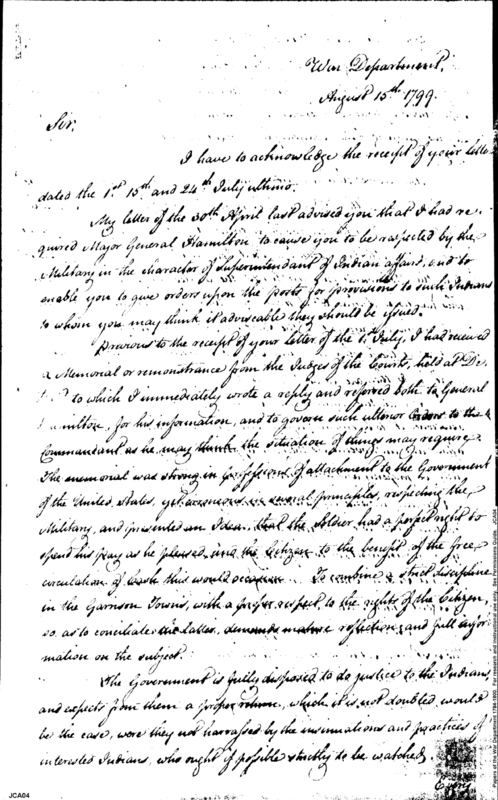 War Department,
August 15th 1799.
Sir,
I have to acknowledge the receipt of your letters
dated the 1st 15th and 24th July ultimo.
My letter of the 30th April last advised you that I had re-
quired Major General Hamilton to cause you to be respected by the
Military in the character of Superintendant of Indian affairs, and to
enable you to give orders upon the posts for provisions to such Indians
to whom you may think it adviseable they should be issued.
Previous to the receipt of your letter of the 1st July, I had received
a Memorial or remonstrance from the Judges of the Courts, held at De-
to which I immediately wrote a reply and referred both to General
Hamilton, for his information, and to govern such ulterior Orders to the
Commandant as he may think the situation of things may require.
The memorial was strong in professions of attachment to the Government
of the United States, yet erroneous in several principles, respecting the
Military, and presented an Idea, that the Soldier had a perfect right to
spend his pay as he pleased, and the Citizen to the benefit of the free
circulation of Cash this would occasion. To combine a strict discipline
in the Garrison Towns, with a proper respect to the rights of the Citizen,
so as to conciliate the latter, demands mature reflection, and full infor-
mation on the subject.
The Government is fully disposed to do justice to the Indians,
and expects from them a proper return, which it is not doubted, would
be the case, were they not harrassed by the insinuations and practices of
interested Indians, who ought if possible strictly to be watched.
Every
JCA04